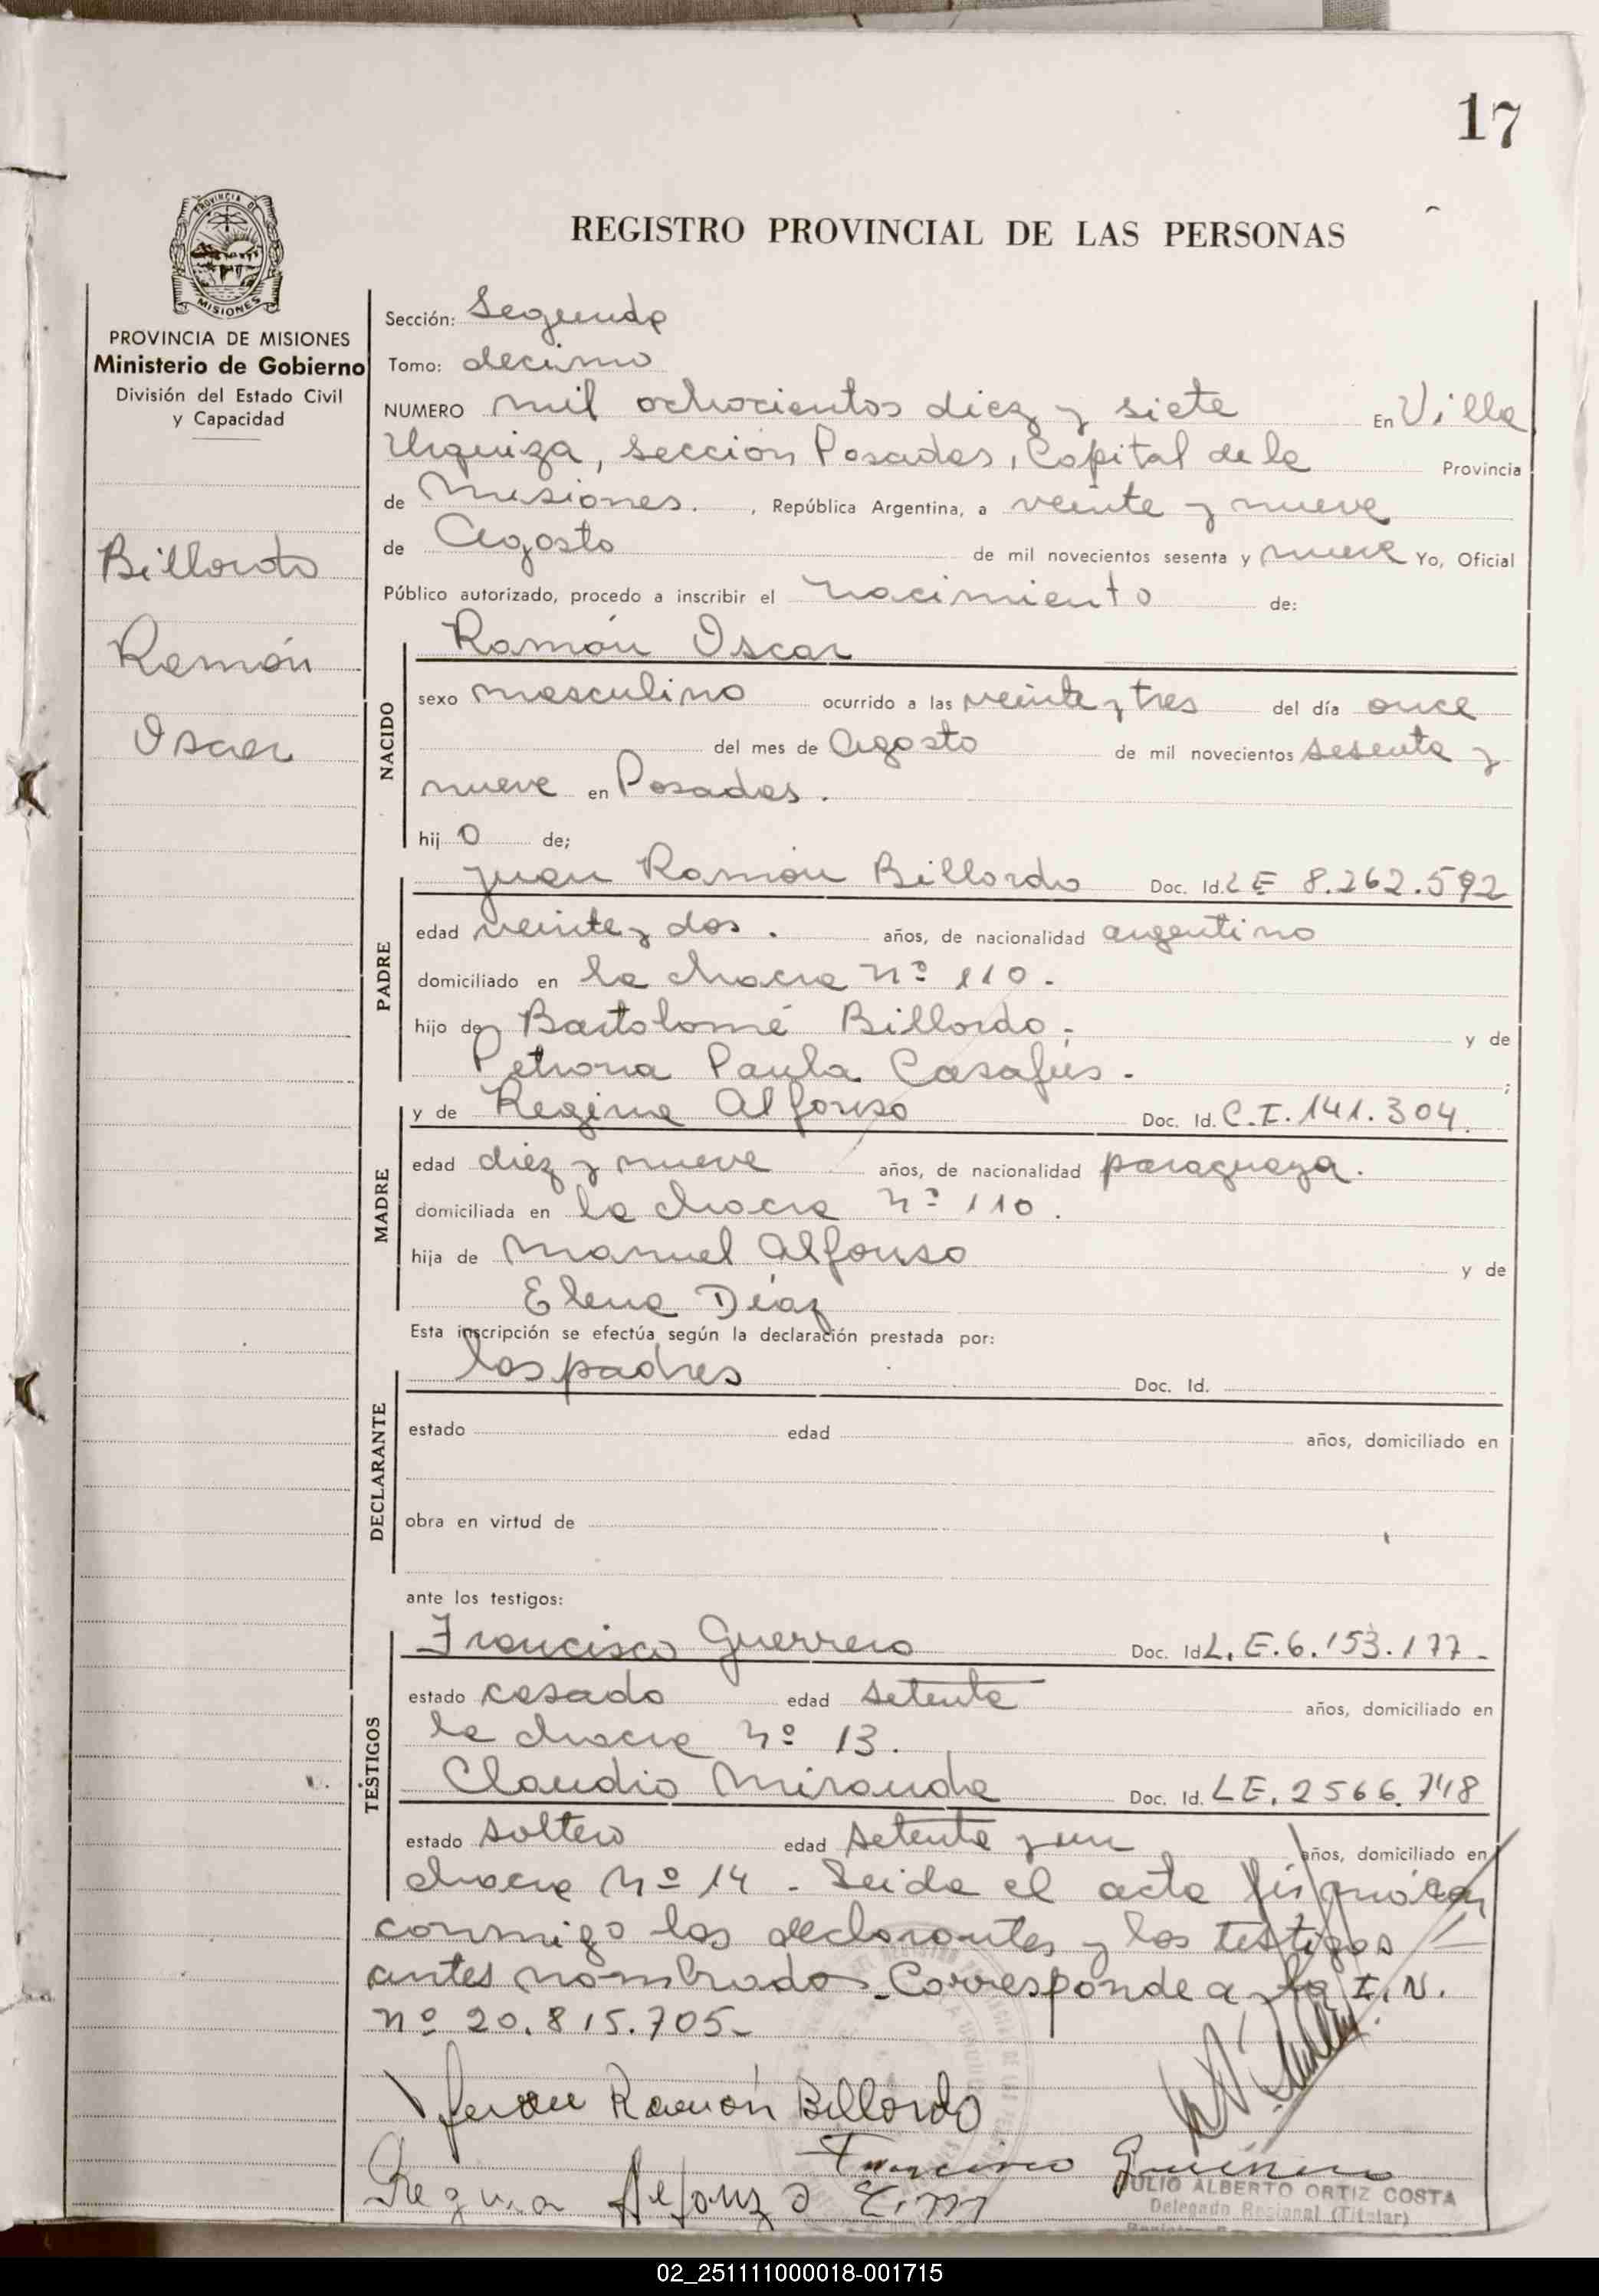 17
PROVINCIA DE
MISIONES
REGISTRO PROVINCIAL DE LAS PERSONAS
PROVINCIA DE MISIONES
Ministerio de Gobierno
División del Estado Civil
y Capacidad
Billordo
Ramón
Oscar
Sección: Segunda
Tomo: decimo
NUMERO mil ochocientos diez y siete En Villa
Urquiza, sección Posadas, Capital de la Provincia
de Misiones. , República Argentina, a veinte y nueve
de Agosto de mil novecientos sesenta y nueve Yo, Oficial
Público autorizado, procedo a inscribir el nacimiento de:
NACIDO
Ramón Oscar
sexo masculino ocurrido a las veinte y tres del día once
del mes de agosto de mil novecientos sesenta y
nueve en Posadas.
hijo de;
PADRE
Juan Ramón Billordo Doc. Id. LE 8.262.592
edad veinte y dos. años, de nacionalidad argentino
domiciliado en la chacra nº 110.
hijo de Bartolomé Billordo. y de
Petrona Paula Casafús. ;
MADRE
y de Regina Alfonso Doc. Id. C.I. 141.304.
edad diez y nueve años, de nacionalidad paraguaya.
domiciliada en la chacra nº 110.
hija de Manuel Alfonso y de
Elena Díaz
Esta inscripción se efectúa según la declaración prestada por:
DECLARANTE
los padres Doc. Id.
estado edad años, domiciliado en
obra en virtud de
ante los testigos:
TESTIGOS
Francisco Guerrero Doc. Id L.E.6.153.177-
estado casado edad setenta años, domiciliado en
la chacra nº 13.
Claudio Miranda Doc. Id. LE. 2566.748
estado soltero edad setenta y un años, domiciliado en
chacra nº 14 - Leída el acta firmáron
conmigo los declarantes y los testigos
antes nombrados. Corresponde a la I.N.
nº 20.815.705-
Juan Ramón Billordo
Francisco Guerrero
Regina Alfonzo
JULIO ALBERTO ORTIZ COSTA
Delegado Regional (Titular)
02_251111000018-001715